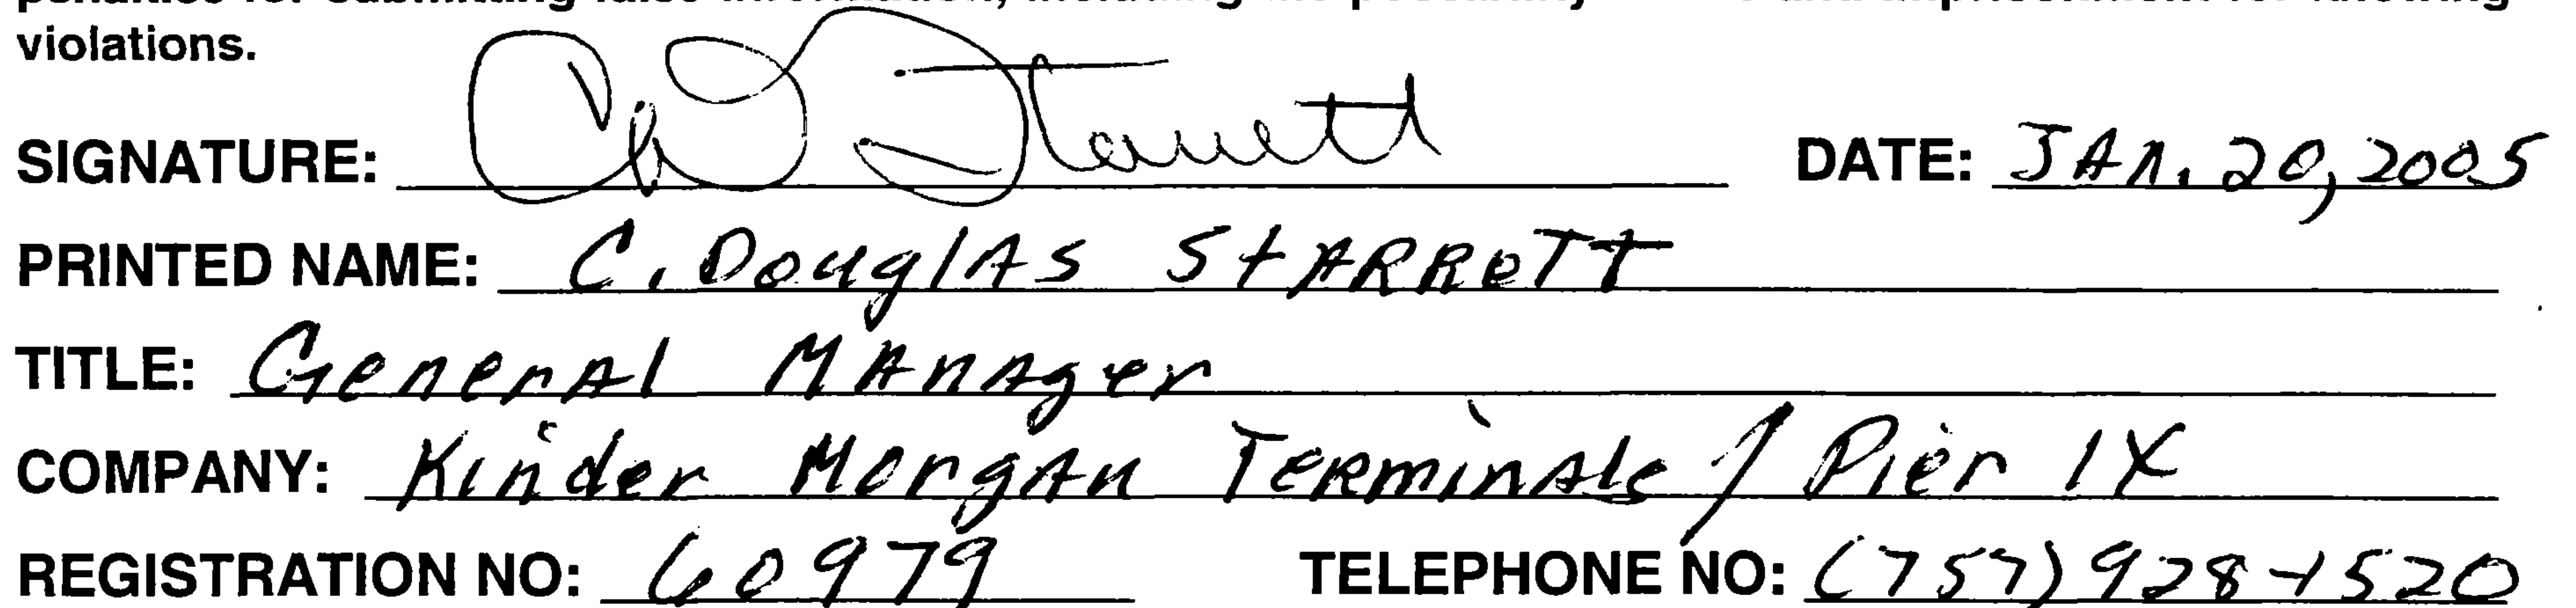 violations.
SIGNATURE: DATE: JAN. 20, 2005
PRINTED NAME: C. DouglAS StARReTT
TITLE: GenerAl MAnAger
COMPANY: Kinder MorgAn TeRminAls / Pier IX
REGISTRATION NO: 60979 TELEPHONE NO: (757) 928-1520